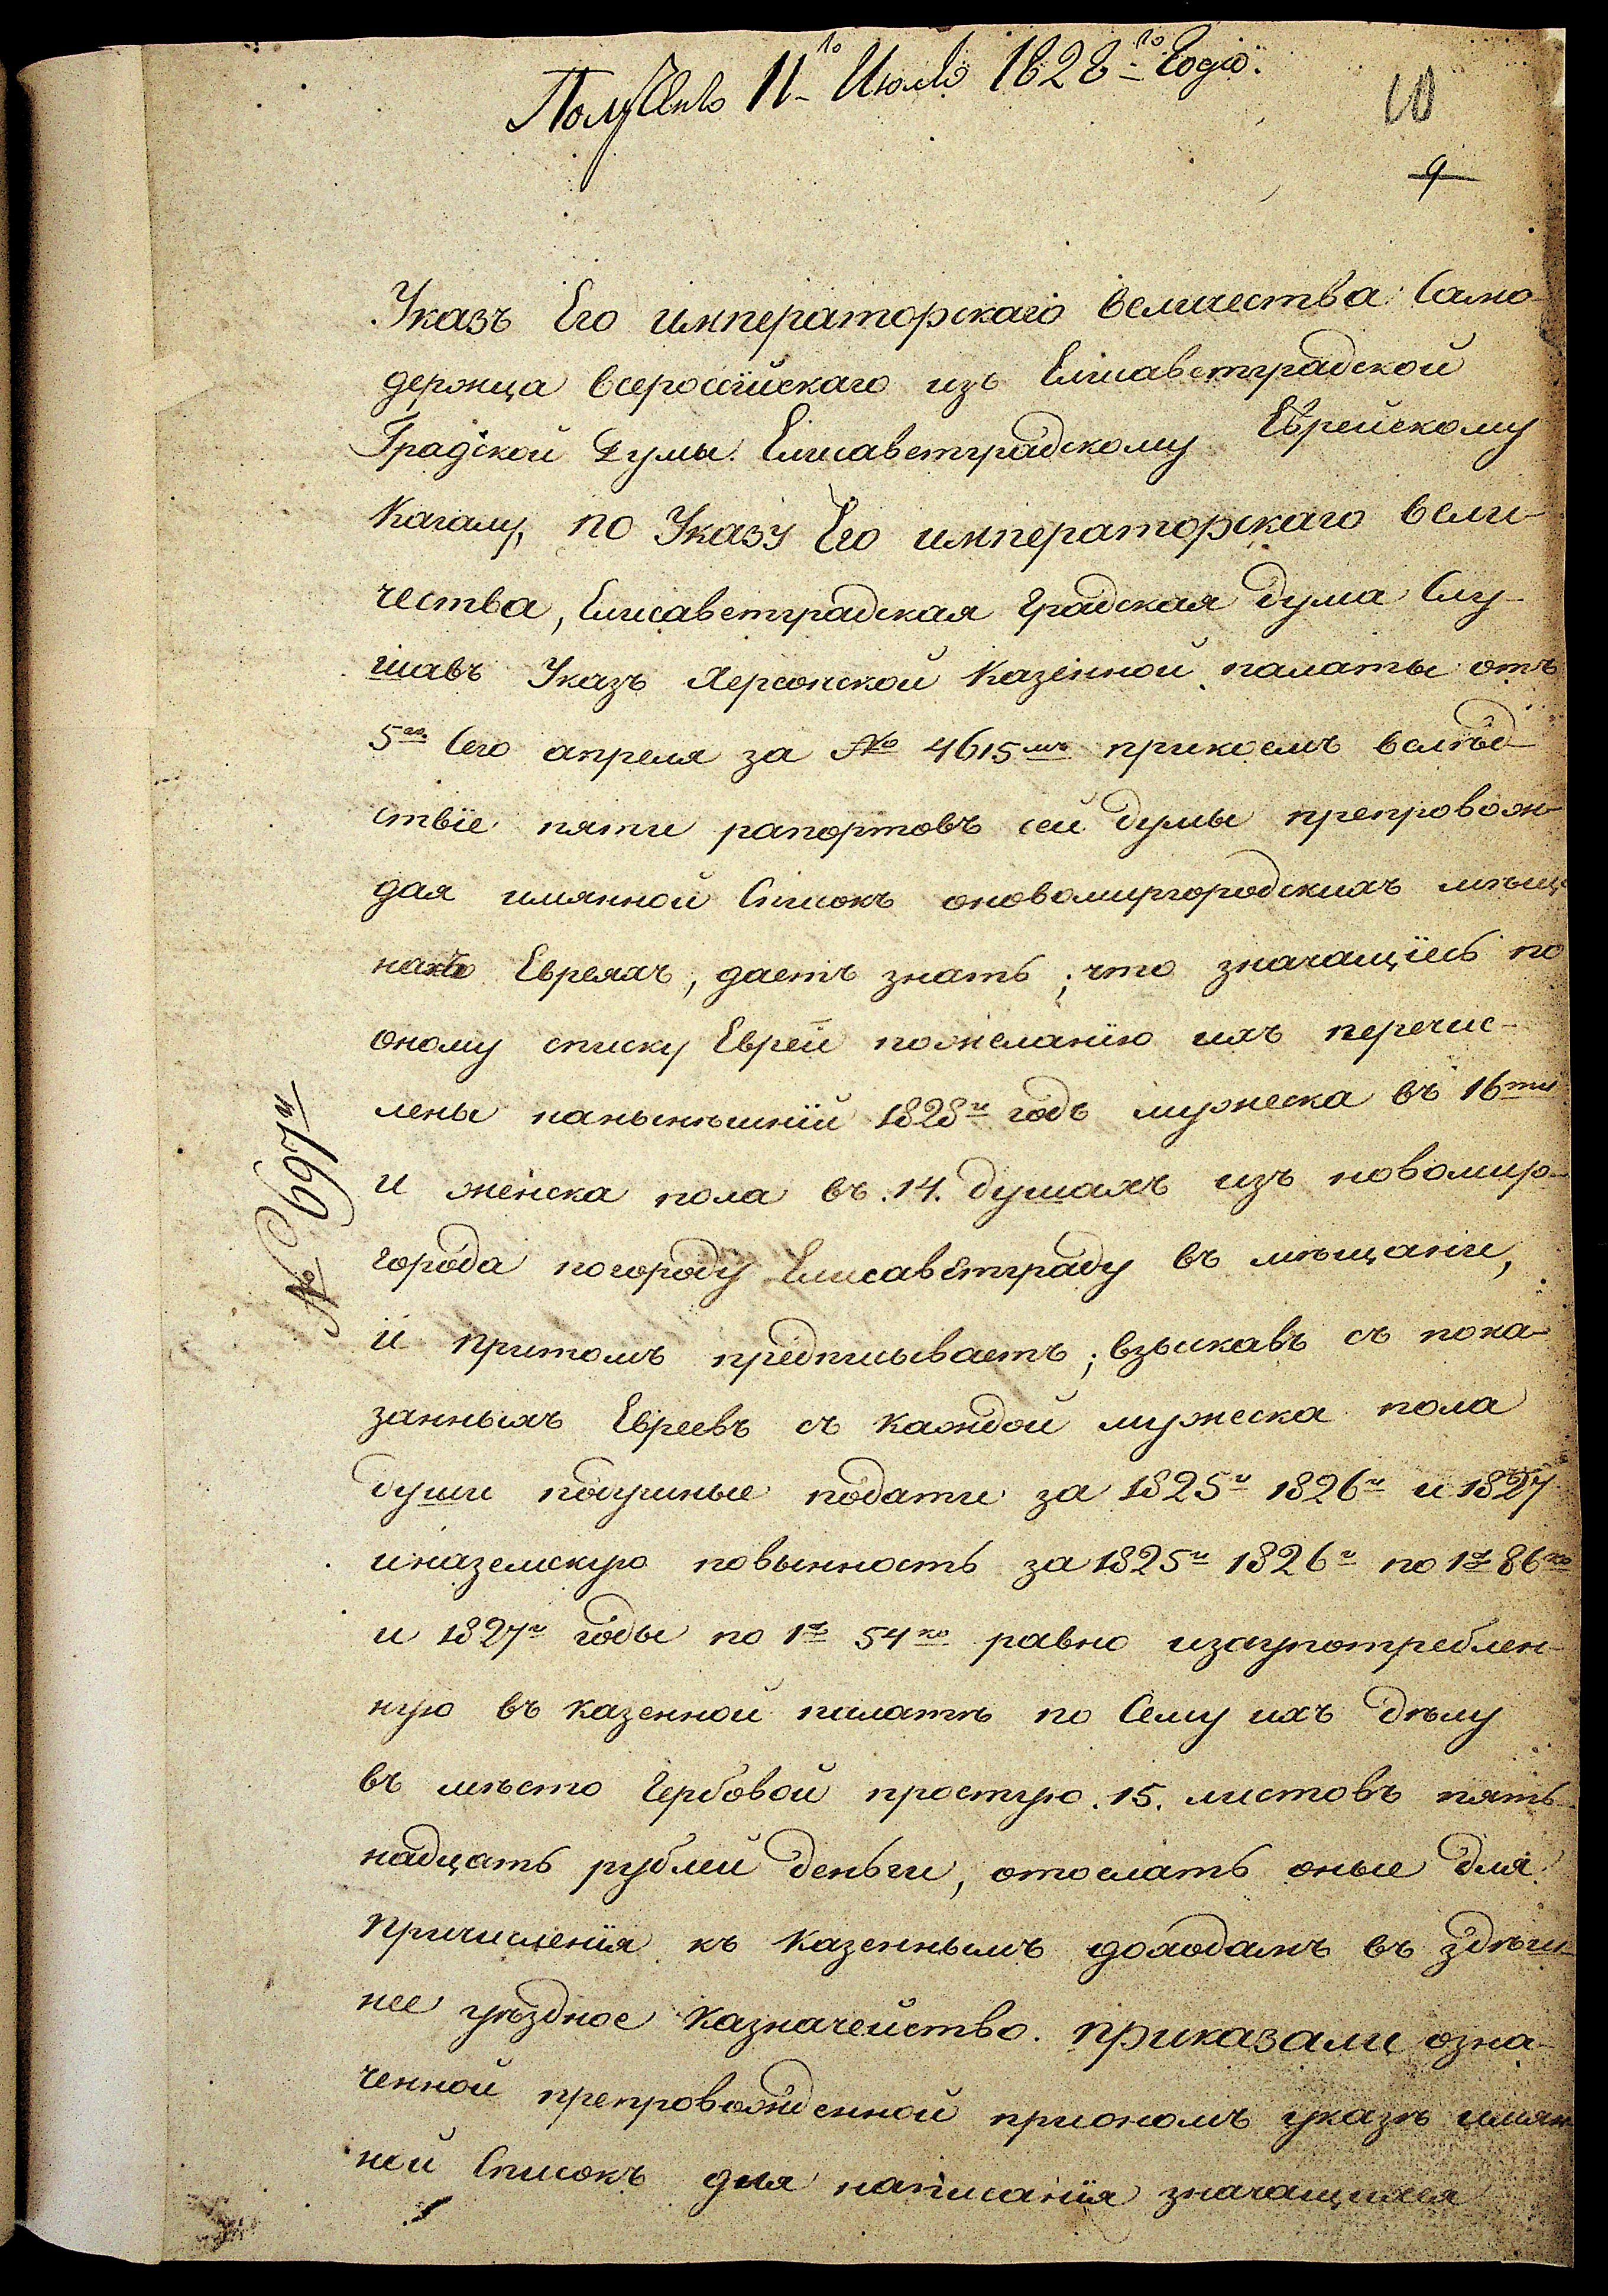 Получено 11го Июля 1828го Года.
10
9
Указъ Его императорскаго величества Само-
держца всероссійскаго изъ Елисаветградской
Градской Думы Елисаветградскому Еврейскому
Кагалу, по Указу Его императорскаго вели-
чества, Елисаветградская Градская дума Слу-
шавъ Указъ Херсонской Казенной палаты отъ
5го Сего апреля за № 4615мъ прикоемъ вслѣд-
ствіе пяти рапортовъ сей думы препровож-
дая имянной Списокъ оновомиргородскихъ мѣща-
нахъ Евреяхъ, даетъ знать; что значащіесь по
оному списку Евреи пожеланію ихъ перечис-
лены нанынѣшній 1828й годъ мужеска въ 16ти
и женска пола въ .14. душахъ изъ новомир-
города погороду Елисаветграду въ мѣщани,
и притомъ предписываетъ; взыскавъ съ пока-
занныхъ Евреевъ съ каждой мужеска пола
души подушные подати за 1825й 1826й и 1827
иназемскую повынность за 1825й 1826й по 1р 86ко
и 1827й годы по 1р 54ко равно изаупотреблен-
ную въ казенной палатѣ по Сему ихъ дѣлу
въ мѣсто Гербовой простую .15. листовъ пять-
надцать рублей деньги, отослать оные для
причисленія къ казеннымъ доходамъ въ здѣш-
нее уѣздное казначейство. приказали озна-
ченной препровожденной приономъ указѣ имян-
ной Списокъ для написанія значащихся
№ 697й